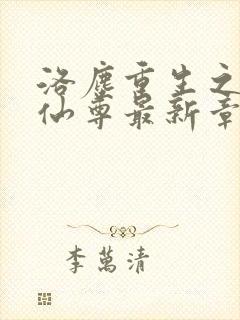 洛塵重生之
仙尊最新章
李萬清